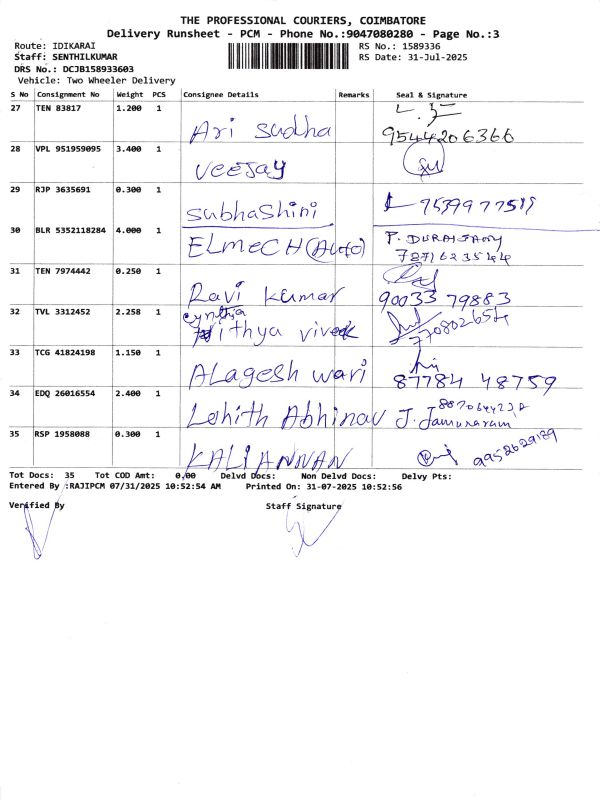 THE PROFESSIONAL COURIERS, COIMBATORE
Delivery Runsheet - PCM - Phone No.:9047080280 - Page No.:3
Route: IDIKARAI RS No.: 1589336
Staff: SENTHILKUMAR RS Date: 31-Jul-2025
DRS No.: DCJB158933603
Vehicle: Two Wheeler Delivery
S No Consignment No Weight PCS Consignee Details Remarks Seal & Signature
27 TEN 83817 1.200 1 Ari sudha 9544206366
28 VPL 951959095 3.400 1 veeJay
29 RJP 3635691 0.300 1 subhashini
30 BLR 5352118284 4.000 1 ELmeCH (Auto) P. DURAISAMY
7871623544
31 TEN 7974442 0.250 1 Ravi kumar 90033 79883
32 TVL 3312452 2.258 1 cynthia
Nithya vivek 770802654
33 TCG 41824198 1.150 1 ALagesh wari 87784 48759
34 EDQ 26016554 2.400 1 Lohith Abhinav J. Jamunarani
35 RSP 1958088 0.300 1 KALIANNAN 9952629189
Tot Docs: 35 Tot COD Amt: 0.00 Delvd Docs: Non Delvd Docs: Delvy Pts:
Entered By :RAJIPCM 07/31/2025 10:52:54 AM Printed On: 31-07-2025 10:52:56
Verified By Staff Signature